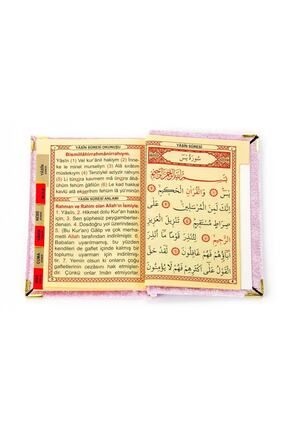 YÂSİN SÛRESİ OKUNUŞU
Bismillâhirrahmânirrahıym.
Yâsîn (1) Vel kur'ânil hakiym (2) İnne-
ke le minel murseliyn (3) Alâ sırâtım
müstekıym (4) Tenziylel aziyzir rahıym
(5) Li tünzira kavmem mâ ünzira âbâ-
ühüm fehüm ğâfilûn (6) Le kad hakka
YÂSİN SÛRESİ ANLAMI
Rahman ve Rahim olan Allah'ın ismiyle.
1. Yâsîn. 2. Hikmet dolu Kur'an hakkı
için, 3. Sen şüphesiz peygamberler-
densin. 4. Dosdoğru yol üzerindesin.
5. (Bu Kur'an) Gâlip ve çok merha-
metli Allah tarafından indirilmiştir. 6.
Babaları uyarılmamış, bu yüzden
kendileri de gaflet içinde kalmış bir
toplumu uyarman için indirilmiştir.
7. Yemin olsun ki onların çoğu
gafletlerinin cezasını hak etmişler-
dir. Çünkü onlar îman etmiyorlar.
YÂSİN SÛRESİ
سورة يس
بسم الله الرحمن الرحيم
يس وَالْقُرْآنِ الْحَكِيمِ
اِنَّكَ لَمِنَ الْمُرْسَلِينَ عَلَى
صِرَاطٍ مُسْتَقِيمٍ تَنْزِيلَ الْعَزِيزِ
الرَّحِيمِ لِتُنْذِرَ قَوْمًا مَا اُنْذِرَ
اٰبَاؤُهُمْ فَهُمْ غَافِلُونَ لَقَدْ حَقَّ
الْقَوْلُ عَلٰى اَكْثَرِهِمْ فَهُمْ لَا يُؤْمِنُونَ